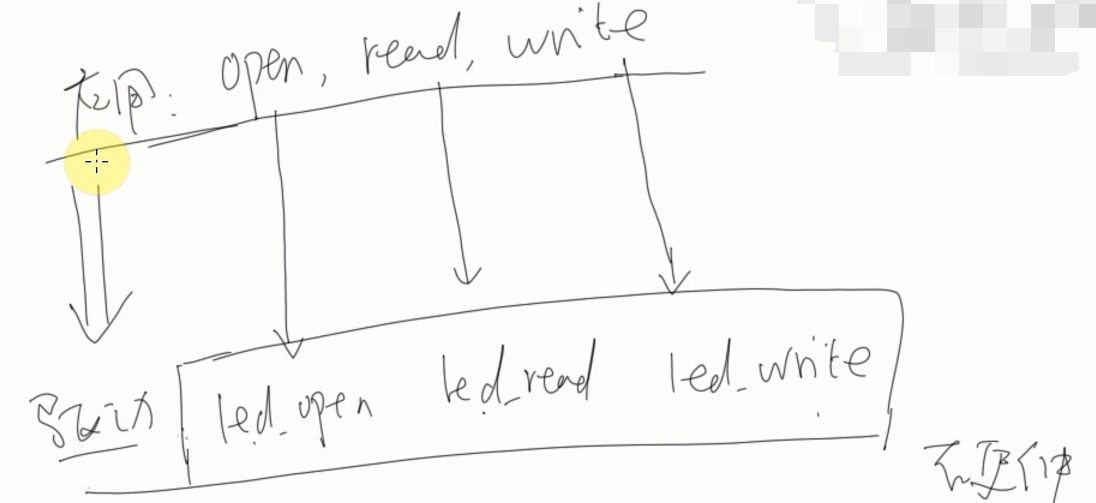 应用: open, read, write
led_open led_read led_write
驱动
硬件